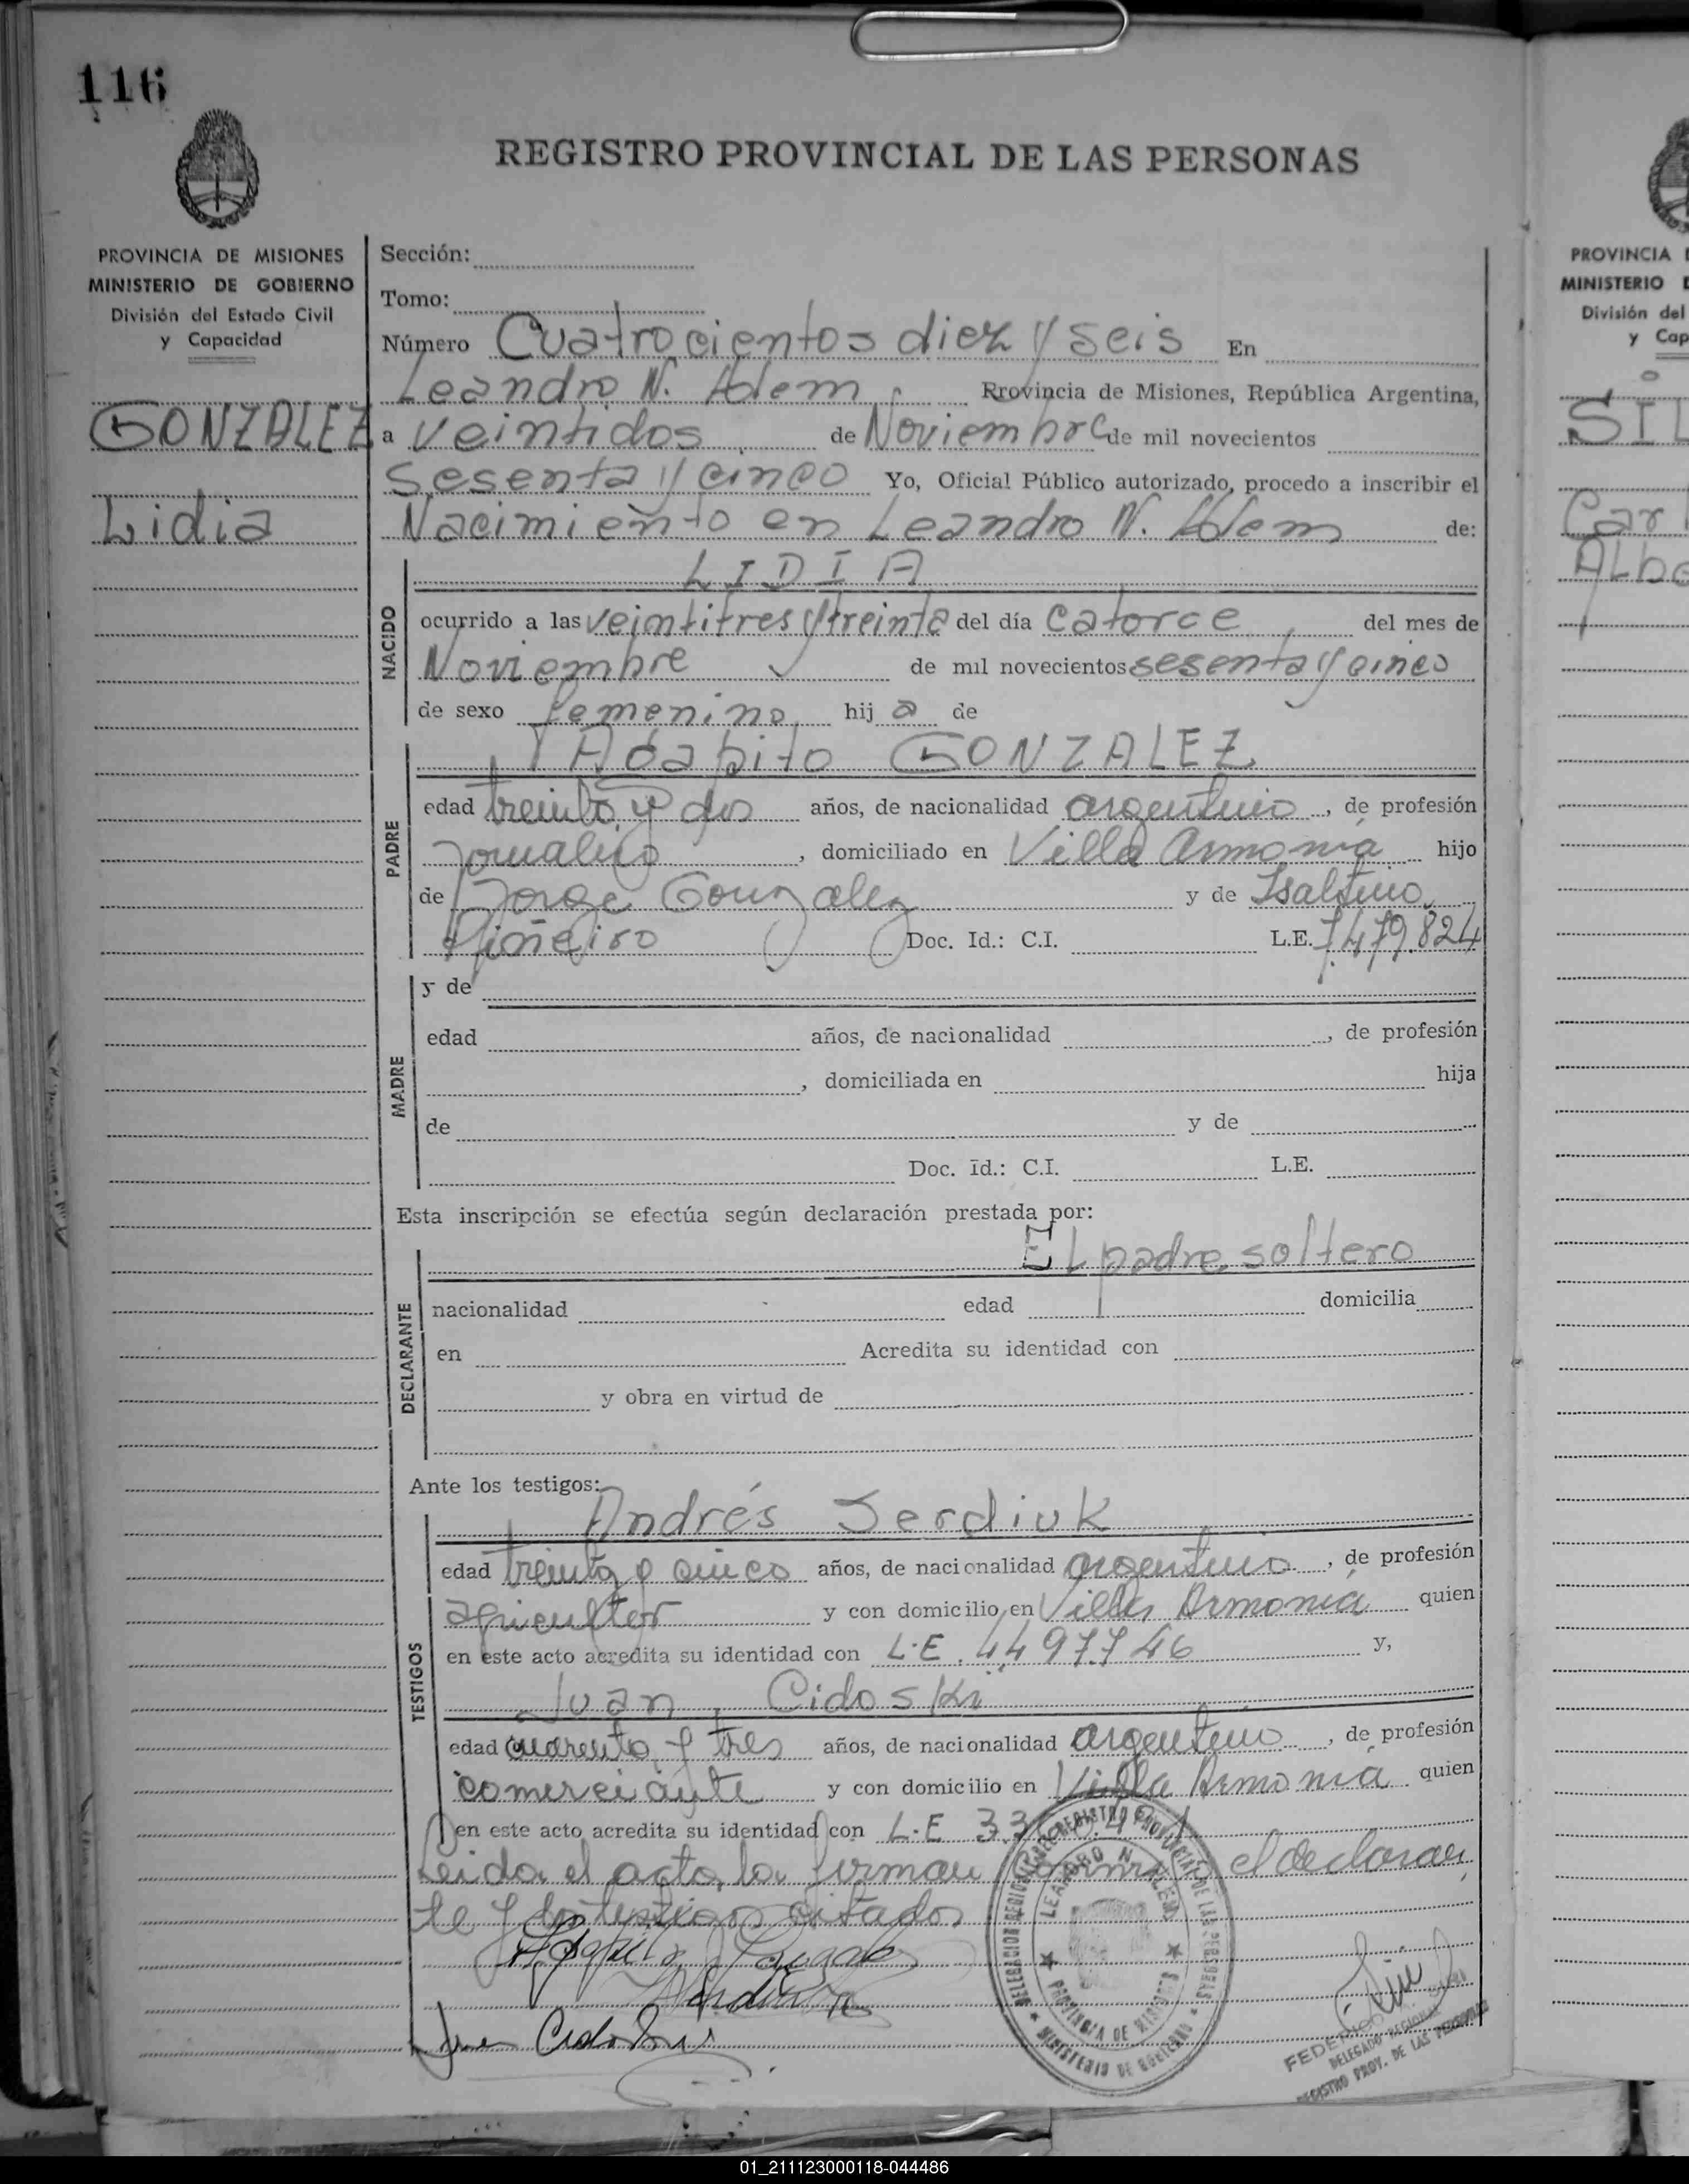 116
REGISTRO PROVINCIAL DE LAS PERSONAS
PROVINCIA DE MISIONES
MINISTERIO DE GOBIERNO
División del Estado Civil
y Capacidad
GONZALEZ
Lidia
Sección:
Tomo:
Número Cuatrocientos diez y seis En
Leandro N. Alem Rrovincia de Misiones, República Argentina,
a veintidos de Noviembre de mil novecientos
sesenta y cinco Yo, Oficial Público autorizado, procedo a inscribir el
Nacimiento en Leandro N. Alem de:
NACIDO
LIDIA
ocurrido a las veintitres y treinta del día catorce del mes de
Noviembre de mil novecientos sesenta y cinco
de sexo femenino hij a de
PADRE
Agapito GONZALEZ
edad treinta y dos años, de nacionalidad argentino, de profesión
Jornalero, domiciliado en Villa Armonia hijo
de Jorge Gonzalez y de Isaltina
Doc. Id.: C.I. L.E. 7.479.824
MADRE
y de
edad años, de nacionalidad , de profesión
, domiciliada en hija
de y de
Doc. Id.: C.I. L.E.
Esta inscripción se efectúa según declaración prestada por:
DECLARANTE
El padre soltero
nacionalidad edad domicilia
en Acredita su identidad con
y obra en virtud de
Ante los testigos:
TESTIGOS
Andrés Serdiuk
edad treinta y cinco años, de nacionalidad argentino, de profesión
agricultor y con domicilio en Villa Armonia quien
en este acto acredita su identidad con L.E. 4497746 y,
Juan Cidoski
edad cuarenta y tres años, de nacionalidad argentino, de profesión
comerciante y con domicilio en Villa Armonia quien
en este acto acredita su identidad con L.E
Leida el acta, la firman conmigo el declaran
te y los testigos citados
REGISTRO PROVINCIAL DE LAS PERSONAS
LEANDRO N. ALEM
PROVINCIA DE MISIONES
MINISTERIO DE GOBIERNO
DELEGADO REGIONAL
REGISTRO PROV. DE LAS PERSONAS
PROVINCIA
MINISTERIO
División del
y Cap
SIL
Car
Albe
01_211123000118-044486